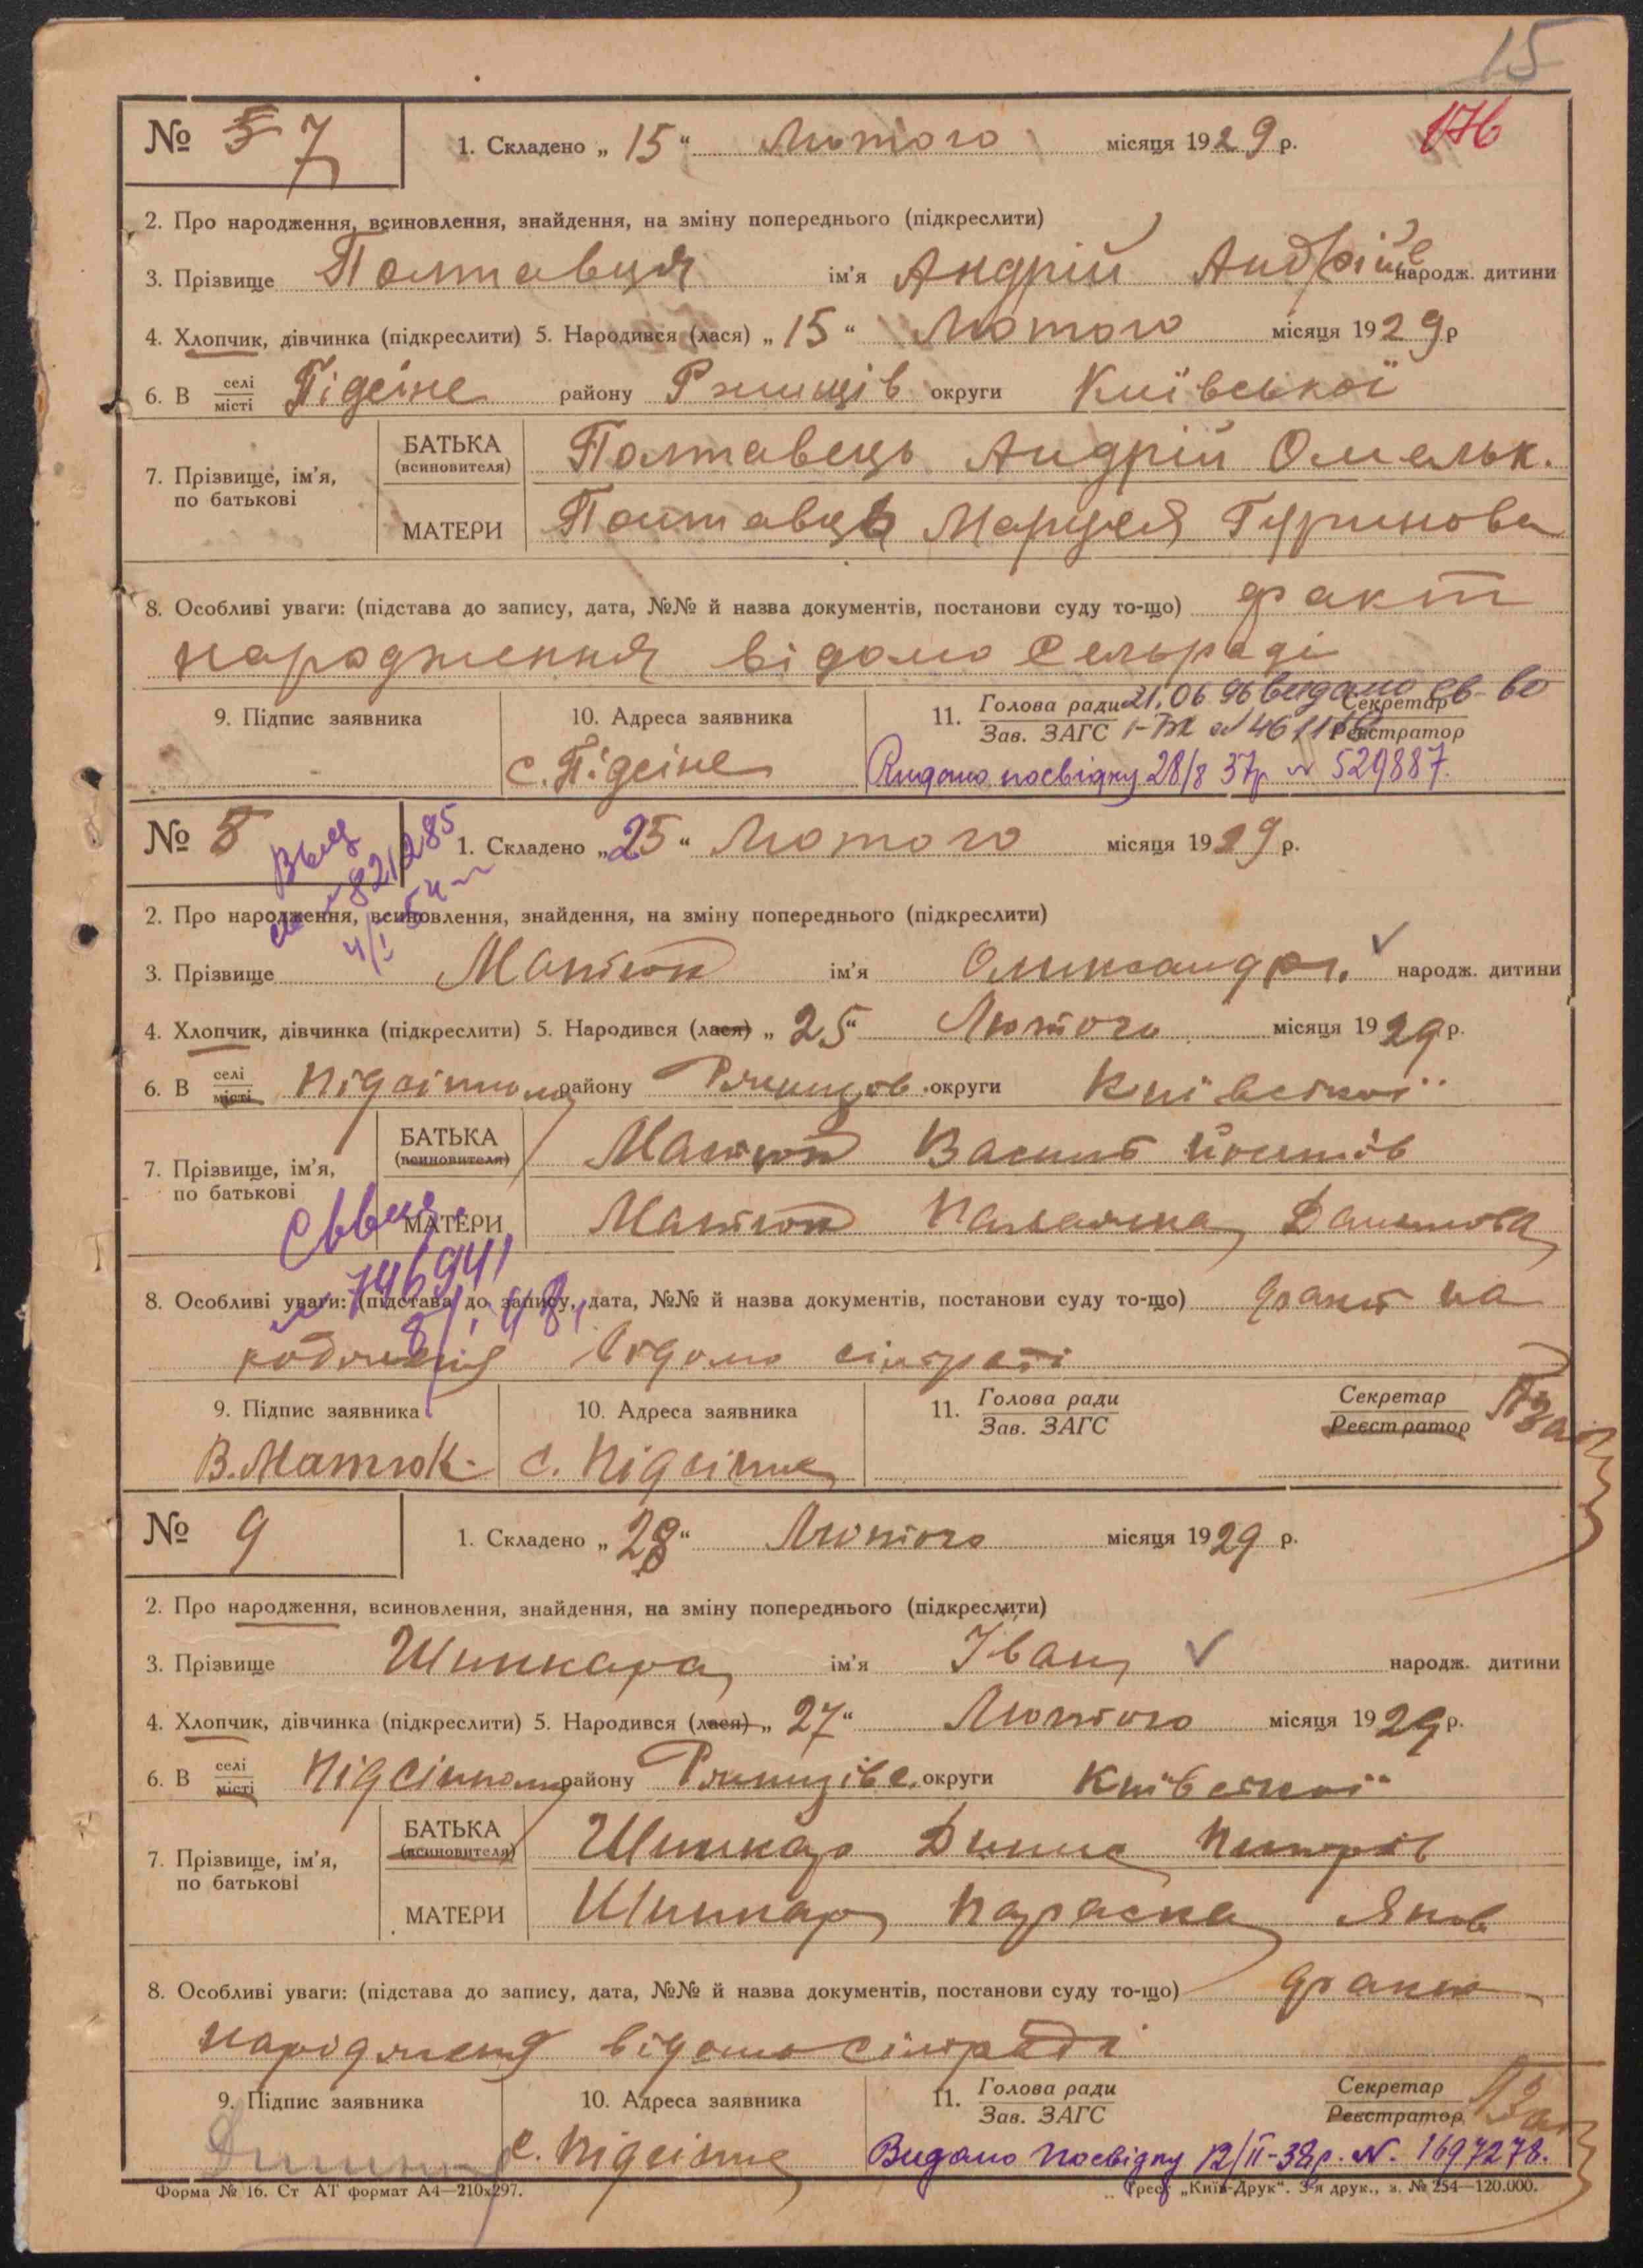 15
№ 7 1. Складено „15“ Лютого місяця 1929 р. 176
2. Про народження, всиновлення, знайдення, на зміну попереднього (підкреслити)
3. Прізвище Полтавця ім'я Андрій народж. дитини
4. Хлопчик, дівчинка (підкреслити) 5. Народився (лася) „15“ Лютого місяця 1929 р
6. В селі/місті Підсіне району Ржищів округи Київської
7. Прізвище, ім'я, по батькові
БАТЬКА (всиновителя) Полтавець Андрій Омельк.
МАТЕРИ Гуринова
8. Особливі уваги: (підстава до запису, дата, №№ й назва документів, постанови суду то-що) факт
народження відомо Сельраді
9. Підпис заявника 10. Адреса заявника 11. Голова ради/Зав. ЗАГС Секретар/Реєстратор
21.06 96 видано св-во
с. Підсіне Видано посвідку 28/8 37р № 529887.
№ 8 1. Складено „25“ Лютого місяця 1929 р.
2. Про народження, всиновлення, знайдення, на зміну попереднього (підкреслити)
3. Прізвище Матюк ім'я народж. дитини
4. Хлопчик, дівчинка (підкреслити) 5. Народився (лася) „25“ Лютого місяця 1929 р.
6. В селі/місті району округи Київської
7. Прізвище, ім'я, по батькові
БАТЬКА (всиновителя) Матюк Василь
МАТЕРИ Матюк Данилова
№ 746941
8. Особливі уваги: (підстава до запису, дата, №№ й назва документів, постанови суду то-що) факт на
відомо сільраді
9. Підпис заявника 10. Адреса заявника 11. Голова ради/Зав. ЗАГС Секретар/Реєстратор
В. Матюк. с. Підсінне
№ 9 1. Складено „28“ Лютого місяця 1929 р.
2. Про народження, всиновлення, знайдення, на зміну попереднього (підкреслити)
3. Прізвище Шинкара ім'я Іван народж. дитини
4. Хлопчик, дівчинка (підкреслити) 5. Народився (лася) „27“ Лютого місяця 1929 р.
6. В селі/місті району округи Київської
7. Прізвище, ім'я, по батькові
БАТЬКА (всиновителя) Шинкар Динис
МАТЕРИ Шинкар Параска Яков
8. Особливі уваги: (підстава до запису, дата, №№ й назва документів, постанови суду то-що) факт
відомо сільраді
9. Підпис заявника 10. Адреса заявника 11. Голова ради/Зав. ЗАГС Секретар/Реєстратор
с. Підсінне Видано посвідку 12/II-38р. N. 1697278.
Форма № 16. Ст АТ формат А4—210х297. Трест „Київ-Друк“. 3-я друк., з. № 254—120.000.